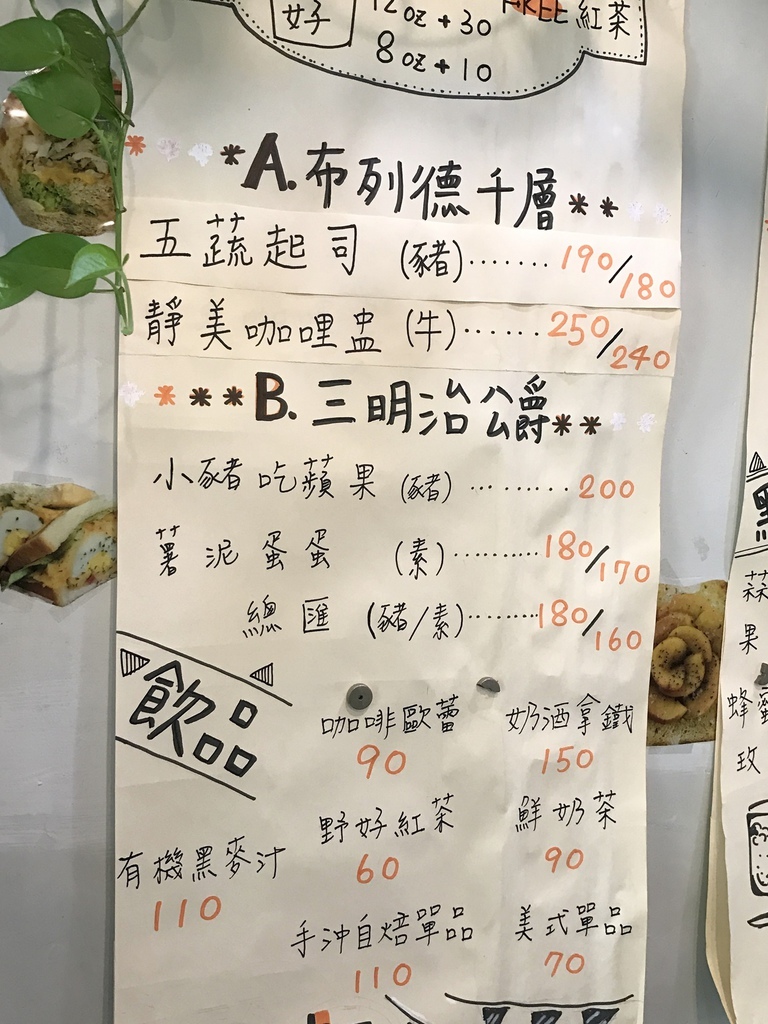 好 12oz+30 FREE 紅茶
8oz+10
*A.布列德千層**
五蔬起司 (豬)······· 190/180
靜美咖哩盅 (牛)······ 250/240
***B.三明治公爵**
小豬吃蘋果 (豬) ········ 200
薯泥蛋蛋 (素)········· 180/170
總匯 (豬/素)······· 180/160
飲品
咖啡歐蕾 奶酒拿鐵
90 150
野好紅茶 鮮奶茶
60 90
有機黑麥汁
110
手沖自焙單品 美式單品
110 70
果
蜂蜜
玫